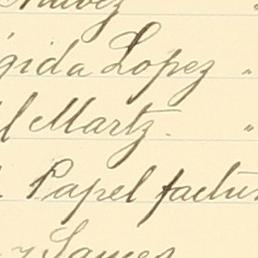 Chavez "
gida Lopez "
l Martz. "
. Papel factu
y James